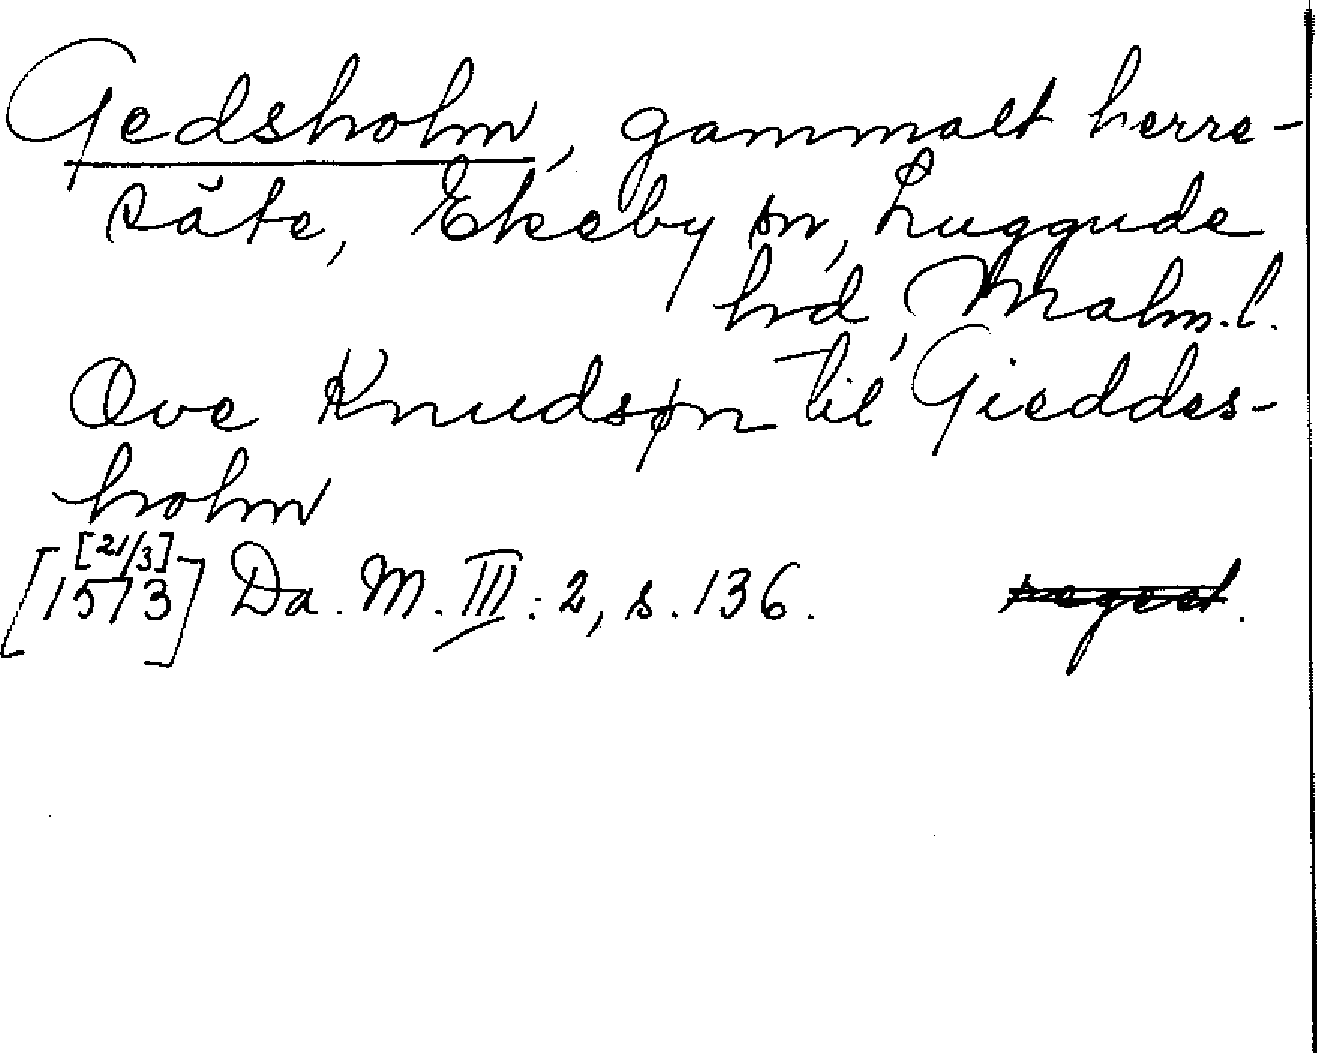 Gedsholm, gammalt herre-
säte, Ekeby sn, Luggude
hd, Malm. l.
Ove Knudsøn til Gieddes-
holm
[21/3]
[1573] Da. M. III: 2, s. 136. regest.